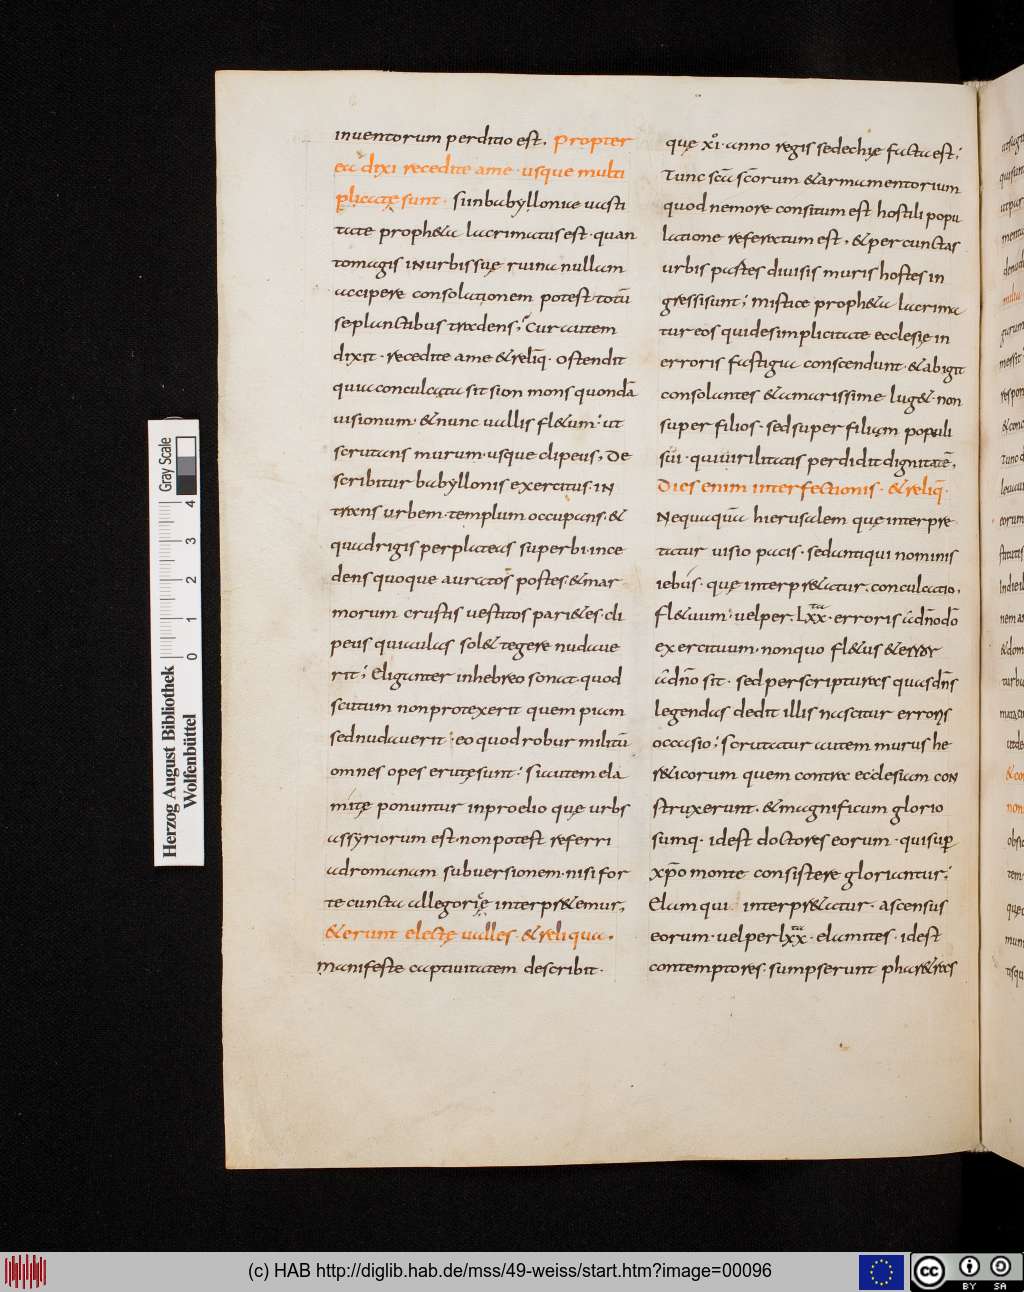 inuentorum perditio est. Propter
ea dixi recedite a me. usque multi
plicatę sunt. Si in babylloniae uasti
tate propheta lacrimatus est. quan
to magis in urbis suę ruina nullam
accipere consolationem potest totū
se planctibus tradens; Cur autem
dixit. recedite a me & reliq̄. ostendit
quia conculcata sit sion mons quondā
uisionum. & nunc uallis fl&um. ut
scrutans murum. usque clipeus. De
scribitur babyllonis exercitus. in
trans urbem. templum occupans. &
quadrigis per plateas superbi. ince
dens quoque auratos postes. & mar
morum crustis uestitos pari&es. cli
peus qui aulas sol& tegere nudaue
rit; Eliganter in hebreo sonat. quod
scutum non protexerit quem piam
sed nudauerit. eo quod robur militū
omnes opes erutę sunt. Si autem ela
mitę ponuntur in proelio quę urbs
assyriorum est. non potest referri
ad romanam subuersionem. nisi for
te cuncta allegorię interpr&emur.
& erunt electę ualles. & reliqua.
manifeste captiuitatem describit.
quę xi° anno regis sedechię facta est;
Tunc scā scōrum & armamentorium
quod nemore consitum est hostili popu
latione reserectum est. & per cunctas
urbis partes diuisis muris hostes in
gressi sunt; Mistice proph&a lacrima
tur eos qui de simplicitate ecclesię in
erroris fastigia conscendunt. & abigit
consolantes & amarissime lug&. non
super filios. sed super filiam populi
sui. qui uirilitatis perdidit dignitatē.
Dies enim interfectionis. & reliq̄.
Nequaquā hierusalem quę interpre
tatur uisio pacis. sed antiqui nominis
iebus. quę interpr&atur. conculcatio.
Fl&uum. uel per. lxx. erroris ā dn̄o dō
exercituum. non quo fl&us & error
ā dn̄o sit. sed per scripturas quas dn̄s
legendas dedit illis nascitur erroris
occasio; Scrutatur autem murus he
r&icorum quem contra ecclesiam con
struxerunt. & magnificum glorio
sumq. id est doctores eorum. qui sup̄
xp̄o monte consistere gloriantur;
Elam qui interpr&atur. ascensus
eorum. uel per lxx. elamites. id est
contemptores. sumpserunt phar&ras
Herzog August Bibliothek
Wolfenbüttel
Gray Scale
0 1 2 3 4
(c) HAB http://diglib.hab.de/mss/49-weiss/start.htm?image=00096
cc BY SA